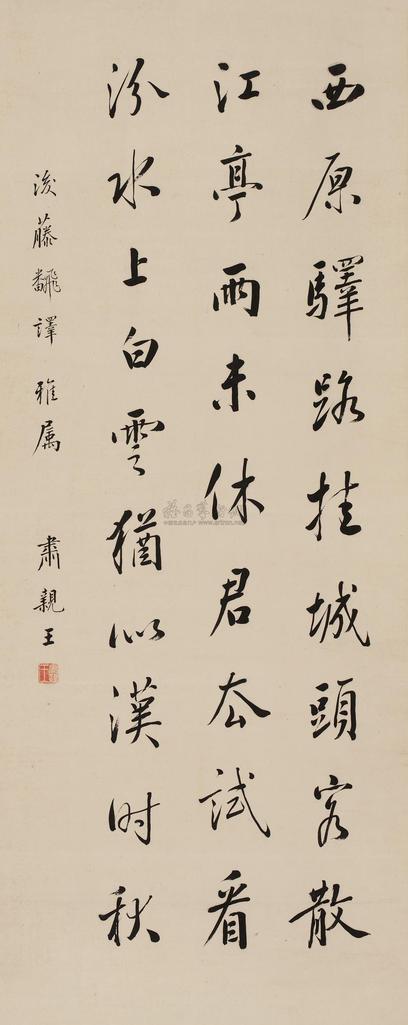 西原驛路挂城頭客散
江亭雨未休君去試看
汾水上白雲猶似漢时秋
後藤飜譯雅属 肅親王